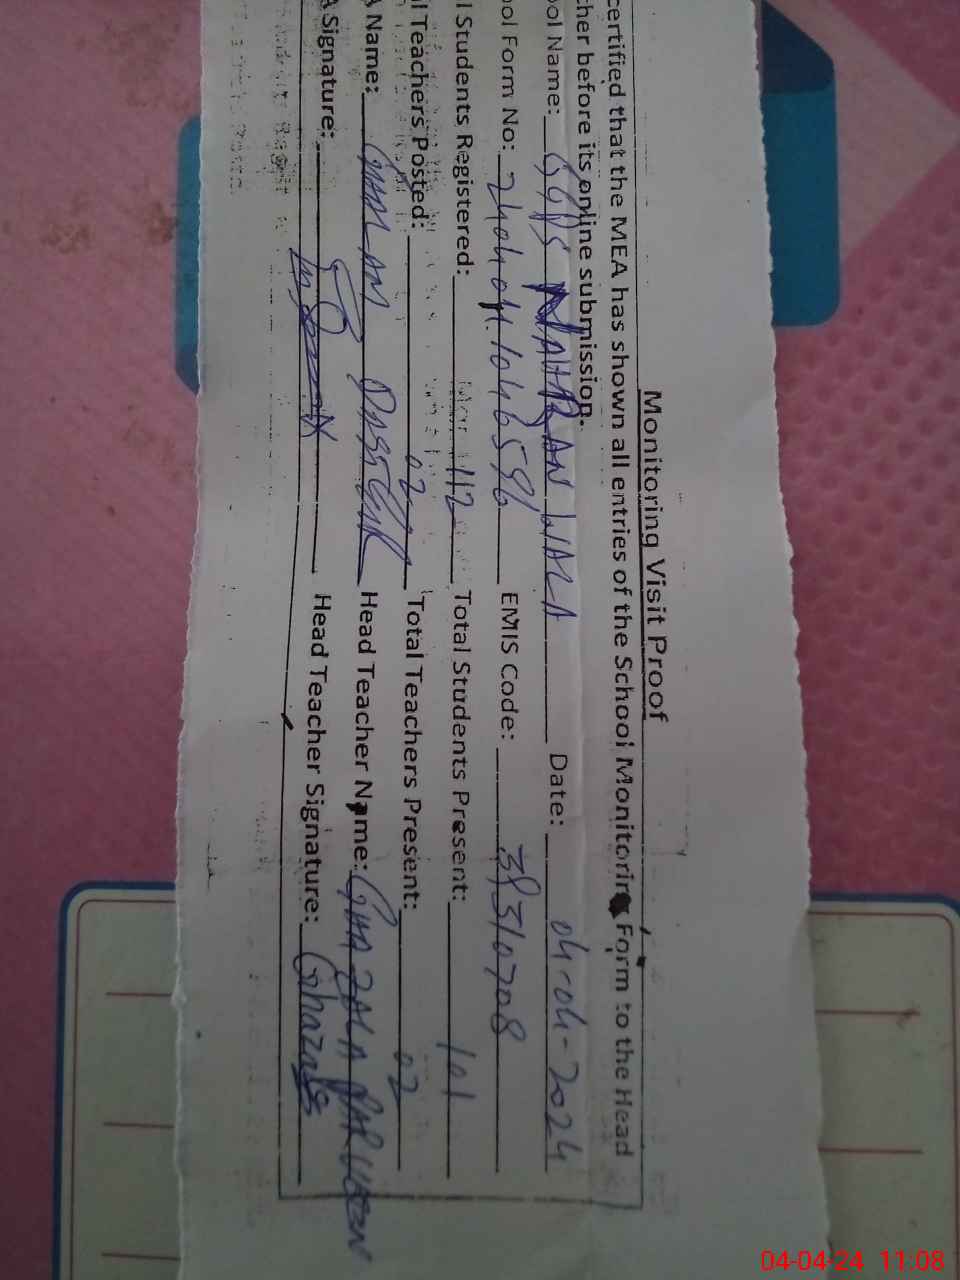 Monitoring Visit Proof
certified that the MEA has shown all entries of the School Monitoring Form to the Head
cher before its online submission.
ool Name: GGPS NAHRAN WALA Date: 04-04-2024
ool Form No: 2404041046596 EMIS Code: 38310708
l Students Registered: 112 Total Students Present: 101
l Teachers Posted: 02 Total Teachers Present: 02
A Name: GHULAM DASTGIR Head Teacher Name: GHAZALA PARVEEN
A Signature: Head Teacher Signature: Ghazala
04-04-24 11:08